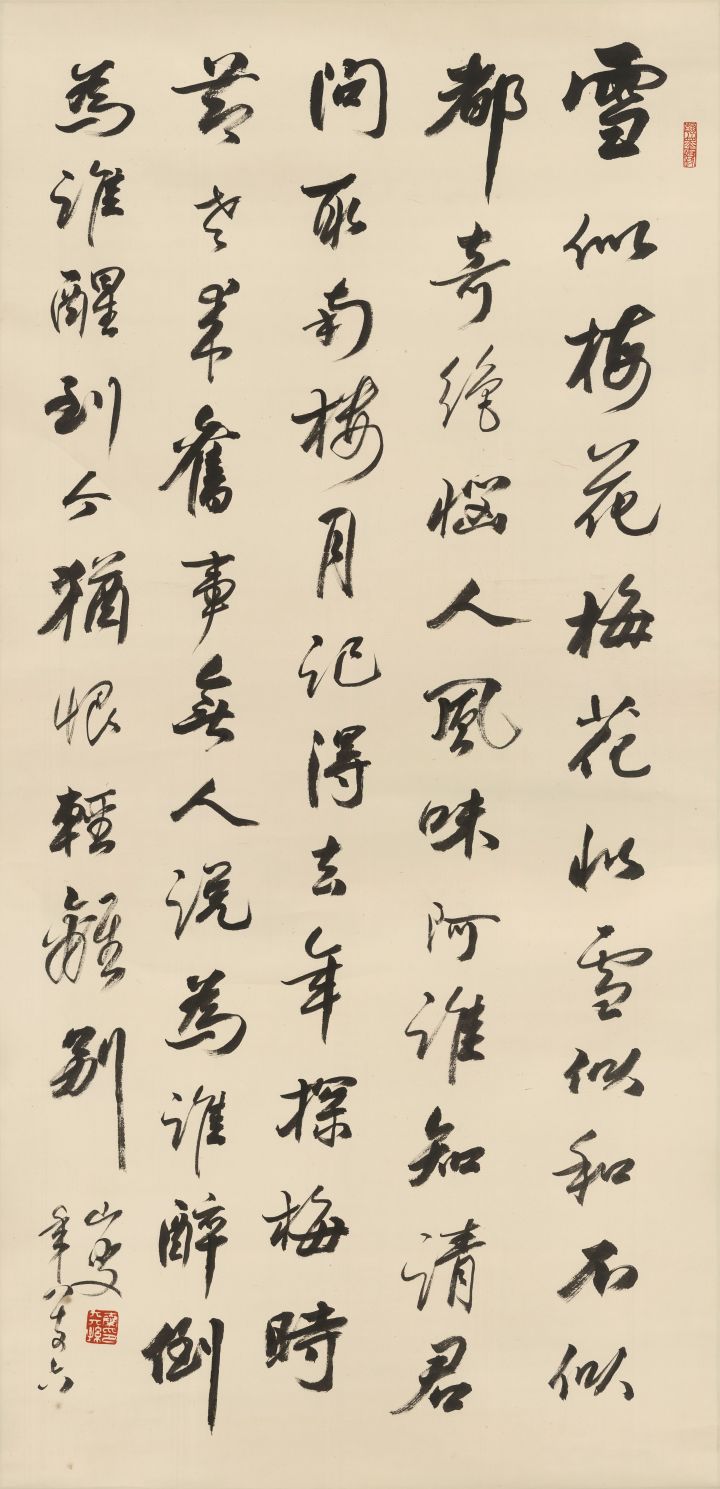 雪似梅花梅花似雪似和不似
都奇絕惱人風味阿誰知請君
問取南樓月記得去年探梅時
節老來舊事無人說為誰醉倒
為誰醒到今猶恨輕離別
山叟
年八十又六